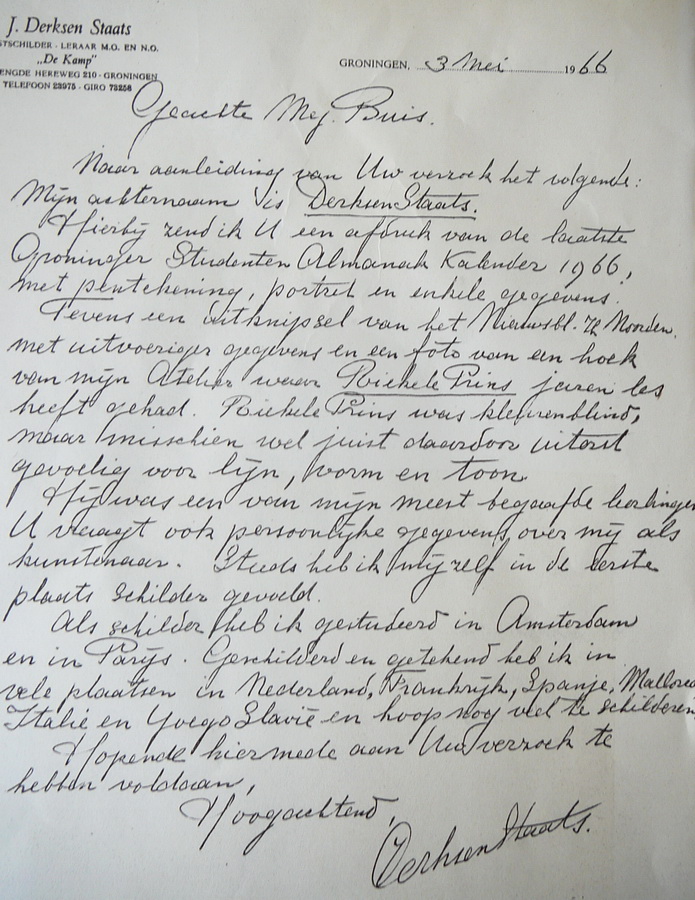 J. Derksen Staats
TSCHILDER - LERAAR M.O. EN N.O.
„De Kamp"
ENGDE HEREWEG 210 - GRONINGEN
TELEFOON 23975 - GIRO 73258
GRONINGEN, 3 Mei 1966
Geachte Mej. Buis.
Naar aanleiding van Uw verzoek het volgende:
Mijn achternaam is Derksen Staats.
Hierbij zend ik U een afdruk van de laatste
Groninger Studenten Almanak Kalender 1966,
met pentekening, portret en enkele gegevens.
Tevens een uitknipsel van het Nieuwsbl. v/h Noorden,
met uitvoeriger gegevens en een foto van een hoek
van mijn Atelier waar Riekele Prins jaren les
heeft gehad. Riekele Prins was kleurenblind,
maar misschien wel juist daardoor uiterst
gevoelig voor lijn, vorm en toon.
Hij was een van mijn meest begaafde leerlingen
U vraagt ook persoonlijke gegevens over mij als
kunstenaar. Steeds heb ik mijzelf in de eerste
plaats schilder gevoeld.
Als schilder heb ik gestudeerd in Amsterdam
en in Parijs. Geschilderd en getekend heb ik in
vele plaatsen in Nederland, Frankrijk, Spanje, Mallorca
Italië en Yoego Slavië en hoop nog veel te schilderen
Hopende hiermede aan Uw verzoek te
hebben voldaan,
Hoogachtend,
Derksen Staats.